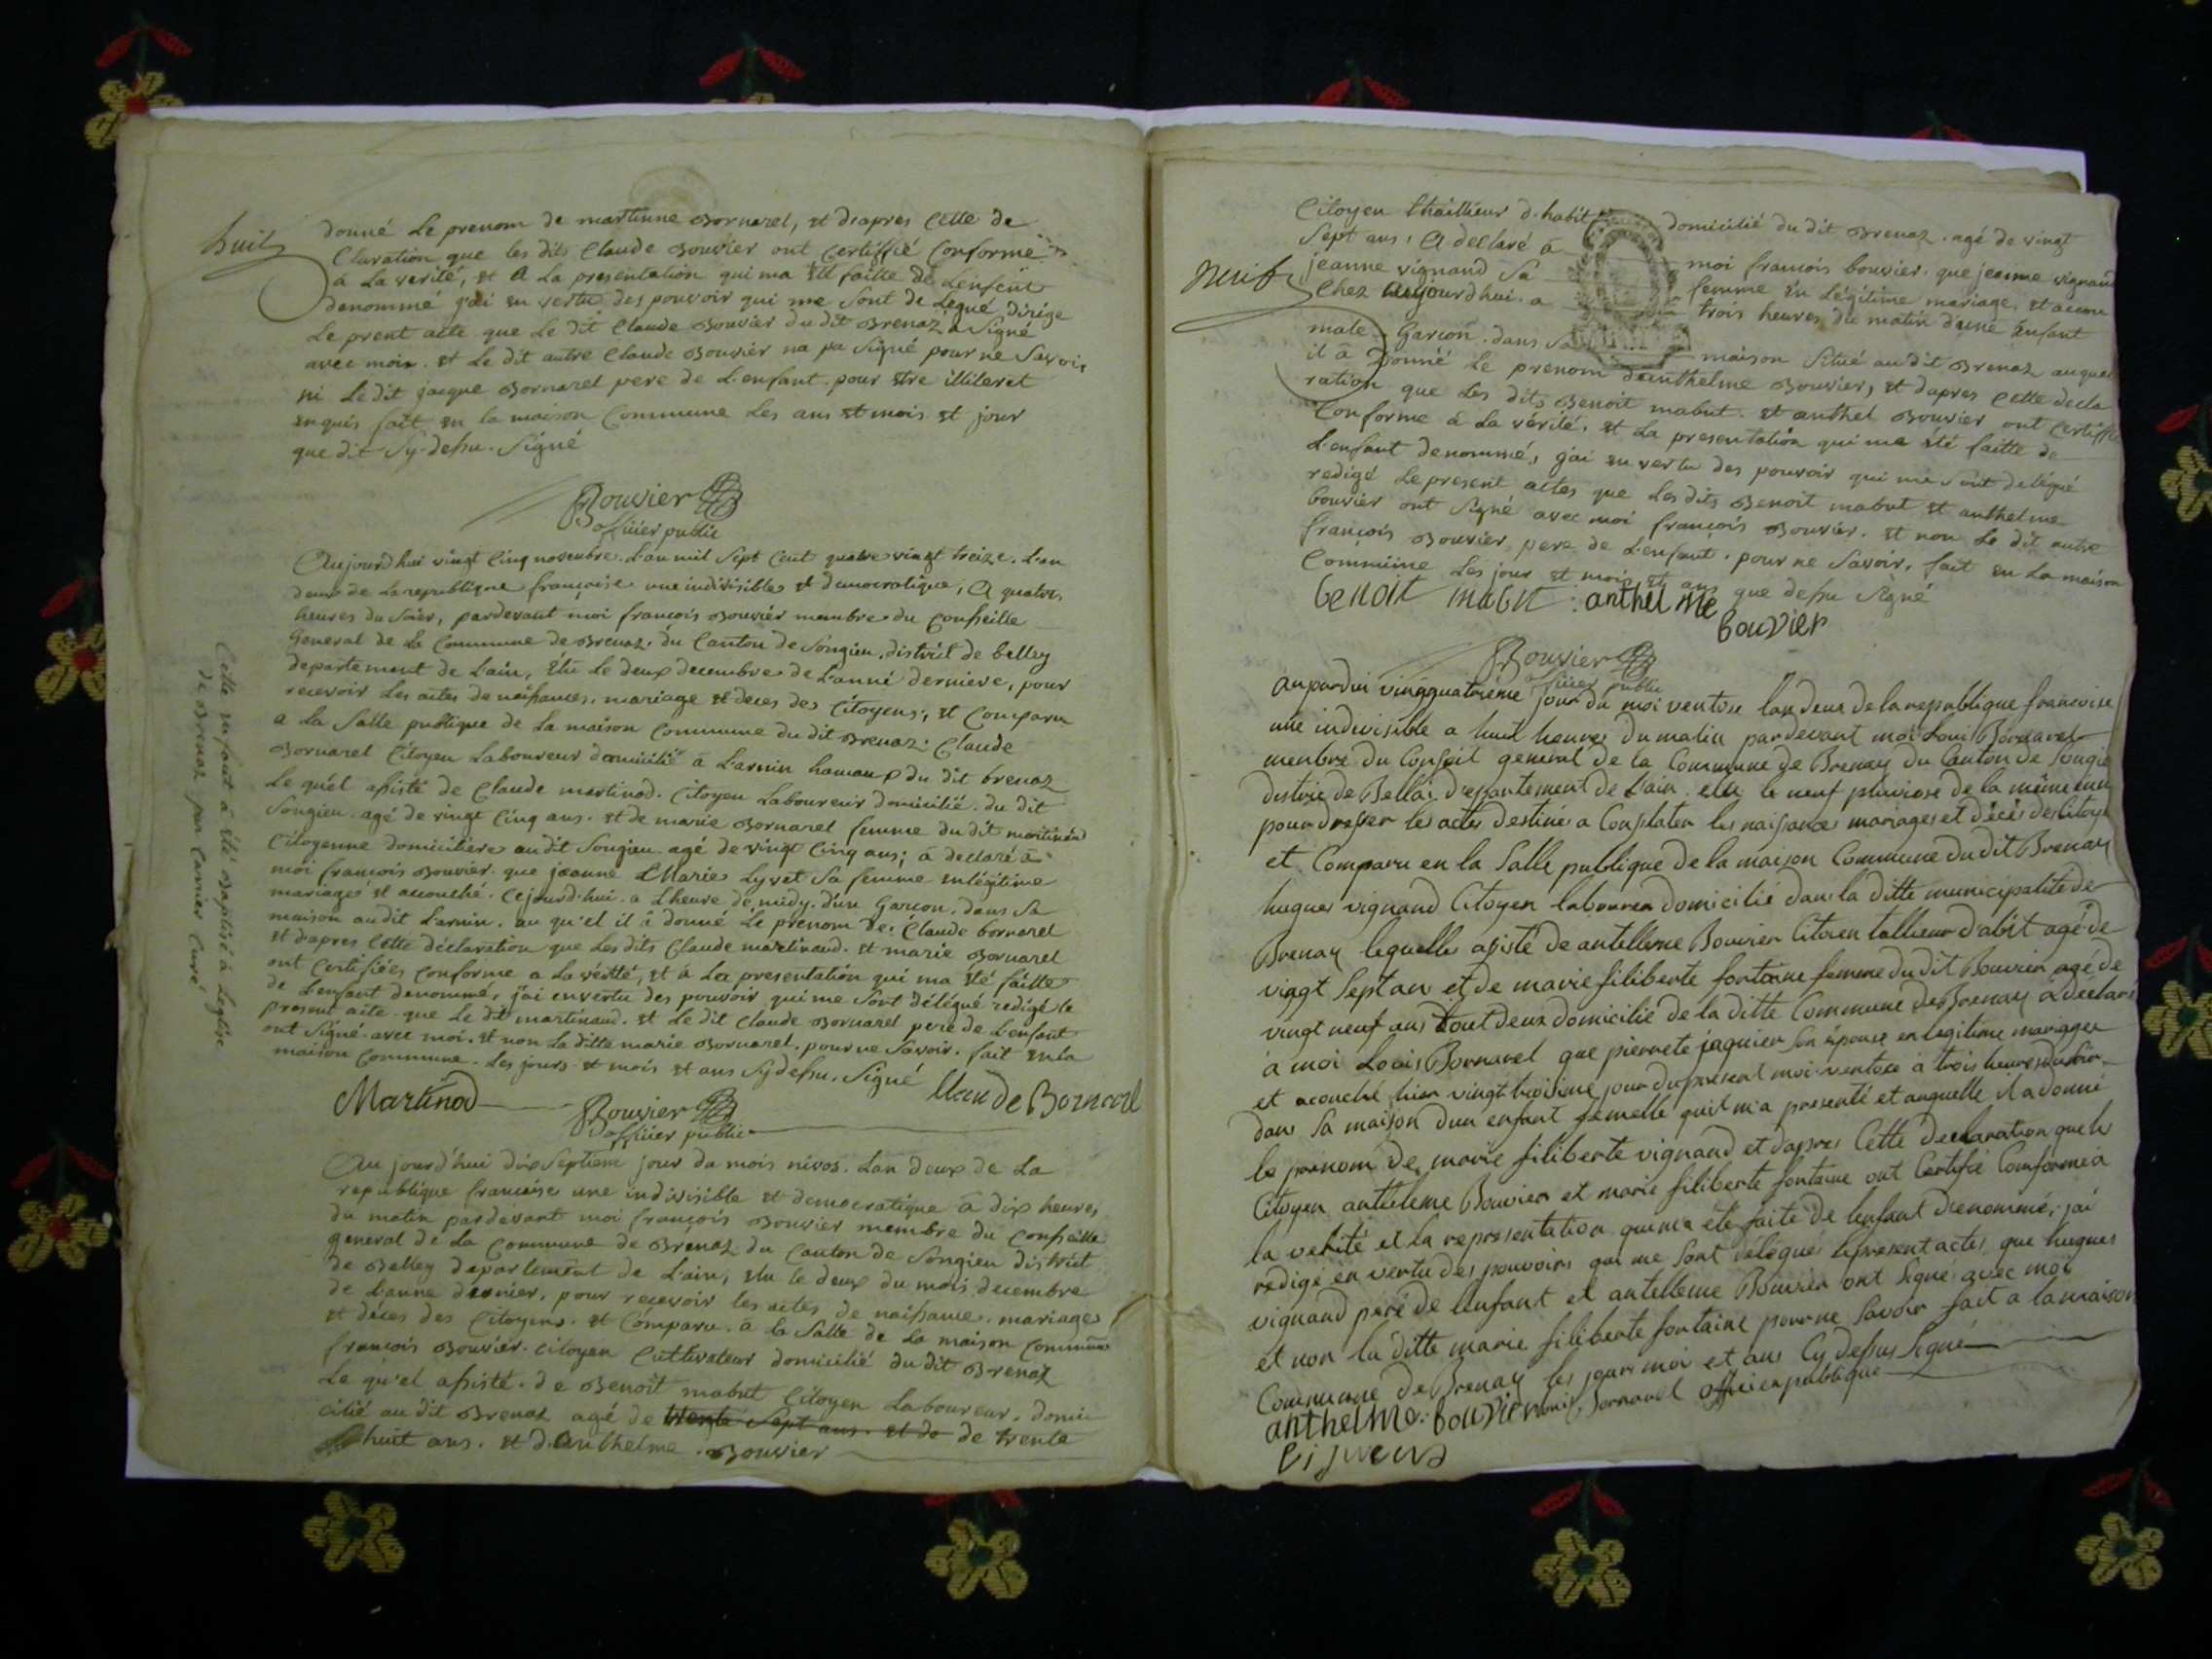 huit
donné Le prenom de martinne Bornarel, et diapres Cette de
Claration que les dits Claude Bouvier ont Certiffié Conforme
à La verité, et A La presentation qui ma été faitte de L'enfent
denommé j'ai en vertu des pouvoir qui me sont de Legué dirige
Le prent acte que Le dit Claude Bouvier du dit Brenaz a Signé
avec moir. et Le dit autre Claude Bouvier na pa Signé pour ne Savoir
ni Le dit jacque Bornarel pere de L'enfant. pour etre illiteret
enquis fait en la maison Commune Les ans et mois et jour
que dit Sy-dessu. Signé
Bouvier
officier public
Aujourd'hui vingt Cinq novembre. L'an mil Sept Cent quatre vingt treize. L'an
deux de La republique françoise une indivisible et democratique, A quatre
heures du Soier, pardevant moi françois Bouvier membre du Conseille
General de La Commune de Brenaz. du Canton de Songieu. district de belley
departement de L'ain, élu Le deux decembre de L'anné derniere, pour
recevoir Les actes de naissances, mariage et deces des Citoyens, et Comparu
a La Salle publique de La maison Commune du dit Brenaz: Claude
Bornarel Citoyen Laboureur domicilié à L'arnin hamaux du dit brenaz
Le quel assisté de Claude martinod. Citoyen Laboureur domicilié. du dit
Songieu. agé de vingt Cinq ans. et de marie Bornarel femme du dit martinod
Citoyenne domiciliere au dit Songieu. agé de vingt Cinq ans; a declaré à
moi françois Bouvier. que jeanne Marie Lyvet Sa femme en légitime
mariage et accouché. Cejourd'hui. a L'heure de midy. d'un Garcon. dans Sa
maison au dit L'arnin. au qu'el il à donné Le prenom de. Claude bornarel
et d'apres Cette déclaration que Les dits Claude martinaud. et marie Bornarel
ont Certifiées Conforme a La vérité, et à La presentation qui ma été faitte
de L'enfant denommé, j'ai en vertu des pouvoir qui me Sont délégué redigé le
present acte. que Le dit martinaud. et Le dit Claude Bornarel pere de L'enfant
ont Signé avec moi. et non La ditte marie Bornarel. pour ne Savoir. fait en La
maison Commune. Les jours et mois et ans Sy dessu. Signé
Martinod Claude Bornarel
Bouvier
officier public
Cette enfant à été Baptisé à Leglise
de Brenaz par Carrier Curé
Au jourd'hui dix Septieme jour du mois nivos. Lan deux de La
republique francaise une indivisible et democratique à dix heures
du matin pardevant moi françois Bouvier membre du Conseille
general de La Commune de Brenaz du Canton de Songieu distrit
de Belley departement de L'ain, élu le deux du mois decembre
de L'anne dernier, pour recevoir les actes de naissance. mariage
et déces des Citoyens. et Comparu. à la Salle de La maison Commune
françois Bouvier. Citoyen Cultivateur domicilié du dit Brenaz
Le qu'el assisté. de Benoit mabut Citoyen Laboureur. domi
cilié au dit Brenaz agé de trente Sept ans. et de de trente
huit ans. et d'Anthelme Bouvier
neuf
Citoyen thaillieur d'habit domicilié du dit Brenaz. agé de vingt
Sept ans. A declaré a moi francois bouvier. que jeanne vignand
jeanne vignand Sa femme en Légitime mariage. et accou
Chez aujourd'hui. a trois heures du matin d'une Enfant
male Garcon. dans Sa maison Situé au dit Brenaz auquel
il à Donné Le prenom d'anthelme Bouvier, et dapres Cette decla
ration que Les dits Benoit mabut. et anthel Bouvier ont Certiffié
Conforme à La vérité. et La presentation qui ma été faitte de
L'enfant denommé, j'ai en vertu des pouvoir qui me Sont delégué
redigé Le present actes que Les dits Benoit mabut et anthelme
bouvier ont Signé avec moi françois Bouvier. et non Le dit autre
françois Bouvier pere de L'enfant. pour ne Savoir. fait en La maison
Commune Les jour et mois et ans que dessu Signé
benoit mabut. anthelme
bouvier
Bouvier
officier public
aujourdui vingquatrieme jour du moi ventose lan deux de la republique francoise
une indivisible a huit heures Du matin par devant moi Louis Bornarel
menbre du Conseil general de la Commune de Brenay du Canton de Songie
distric de Bellai Departement de L'ain. elu le neuf pluviose de la même anne
pour dresser les actes destinés a Constater les naissances mariages et décès des Citoye
et Comparu en la Salle publique de la maison Commune du dit Brenay
hugues vignand Citoyen laboureu domicilié dans la ditte municipalite de
Brenay lequelle assisté de antellme Bouvier Citoien tallieur d'abit agé de
vingt Sept an et de marie filiberte fontaine femme du dit Bouvier agé de
vingt neuf ans tout deux domicilié de la ditte Commune de Brenay a declaré
à moi Louis Bornarel que pierrete jaquier Son épouse en legitime mariage
et acouché hier vingt troisime jour du present moi ventose à trois heures du soir
dans Sa maison dun enfant femelle quil m'a presenté et auquelle il a donné
le prenom De marie filiberte vignand et dapres Cette declaration que le
Citoyen anttelme Bouvier et marie filiberte fontaine ont Certifié Conforme a
la verité et la representation qui ma été faite de lenfant denommé, jai
redigé en vertu des pouvoirs qui me Sont délégués le present actes, que hugues
vignand pere de lenfant et antelleme Bouvier ont Signé avec moi
et non la ditte marie filiberte fontaine pour ne Savoir fait a la maison
Commune de Brenay les jour moi et ans Cy dessus Signé
anthelme. bouvier Louis Bornarel officie publique